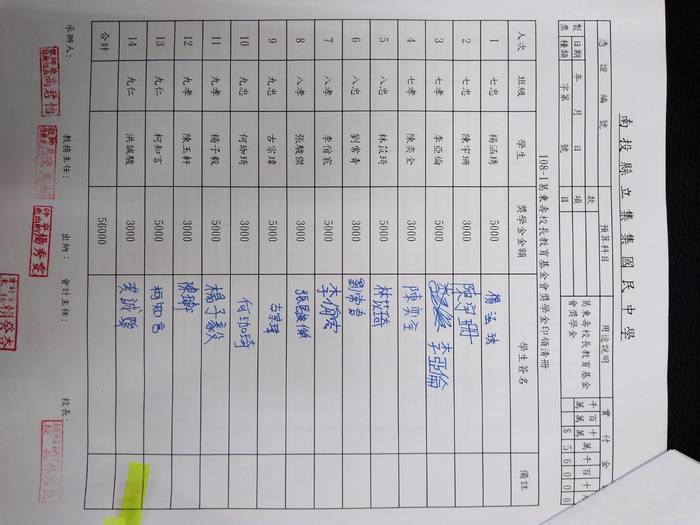 南投縣立集集國民中學
憑證編號 預算科目 用途說明 實付金
製票 日期 年 月 日 款 項 葛東壽校長教育基金會獎學金 千萬 百萬 十萬 萬 千 百 十
種類 字第 號 目 $ 5 6 0 0 0
108-1葛東壽校長教育基金會獎學金印領清冊
人次 班級 學生 獎學金金額 學生簽名 備註
1 七忠 楊涵琇 5000 楊涵琇
2 七忠 陳宇珊 3000 陳宇珊
3 七孝 李亞倫 5000 李亞倫
4 七孝 陳奕全 3000 陳奕全
5 八忠 林苡琦 5000 林苡琦
6 八忠 劉常青 3000 劉常青
7 八孝 李侑宸 5000 李侑宸
8 八孝 張駿傑 3000 張駿傑
9 九忠 古宗瑋 5000 古宗瑋
10 九忠 何珈琦 3000 何珈琦
11 九孝 楊子毅 5000 楊子毅
12 九孝 陳玉軒 3000 陳玉軒
13 九仁 柯知言 5000 柯知言
14 九仁 洪誠駿 3000 洪誠駿
合計 56000
承辦人: 教務主任: 出納: 會計主任: 校長:
高君怡 楊秀雯
賴癸杏